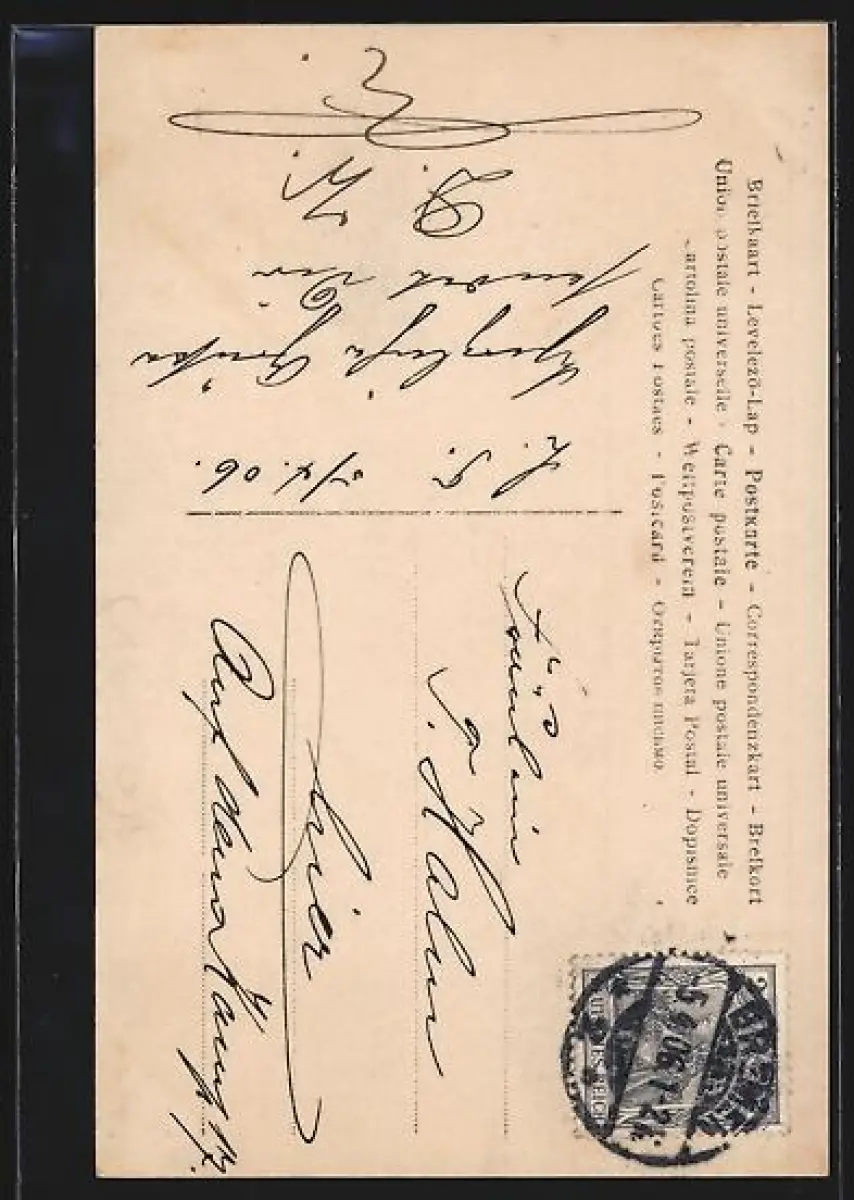 Briefkaart - Levelező-Lap - Postkarte - Correspondenzkart - Brefkort
Union postale universelle - Carte postale - Unione postale universale
Cartolina postale - Weltpostverein - Tarjeta Postal - Dopisnice
Cartoes Postaes - Postcard - Открытое письмо.
L. G. 5/4. 06.
Herzliche Grüße
sendet Dir
D. K.
Fräulein
Hahn
hier
Auf dem
BREMEN
5.4.06